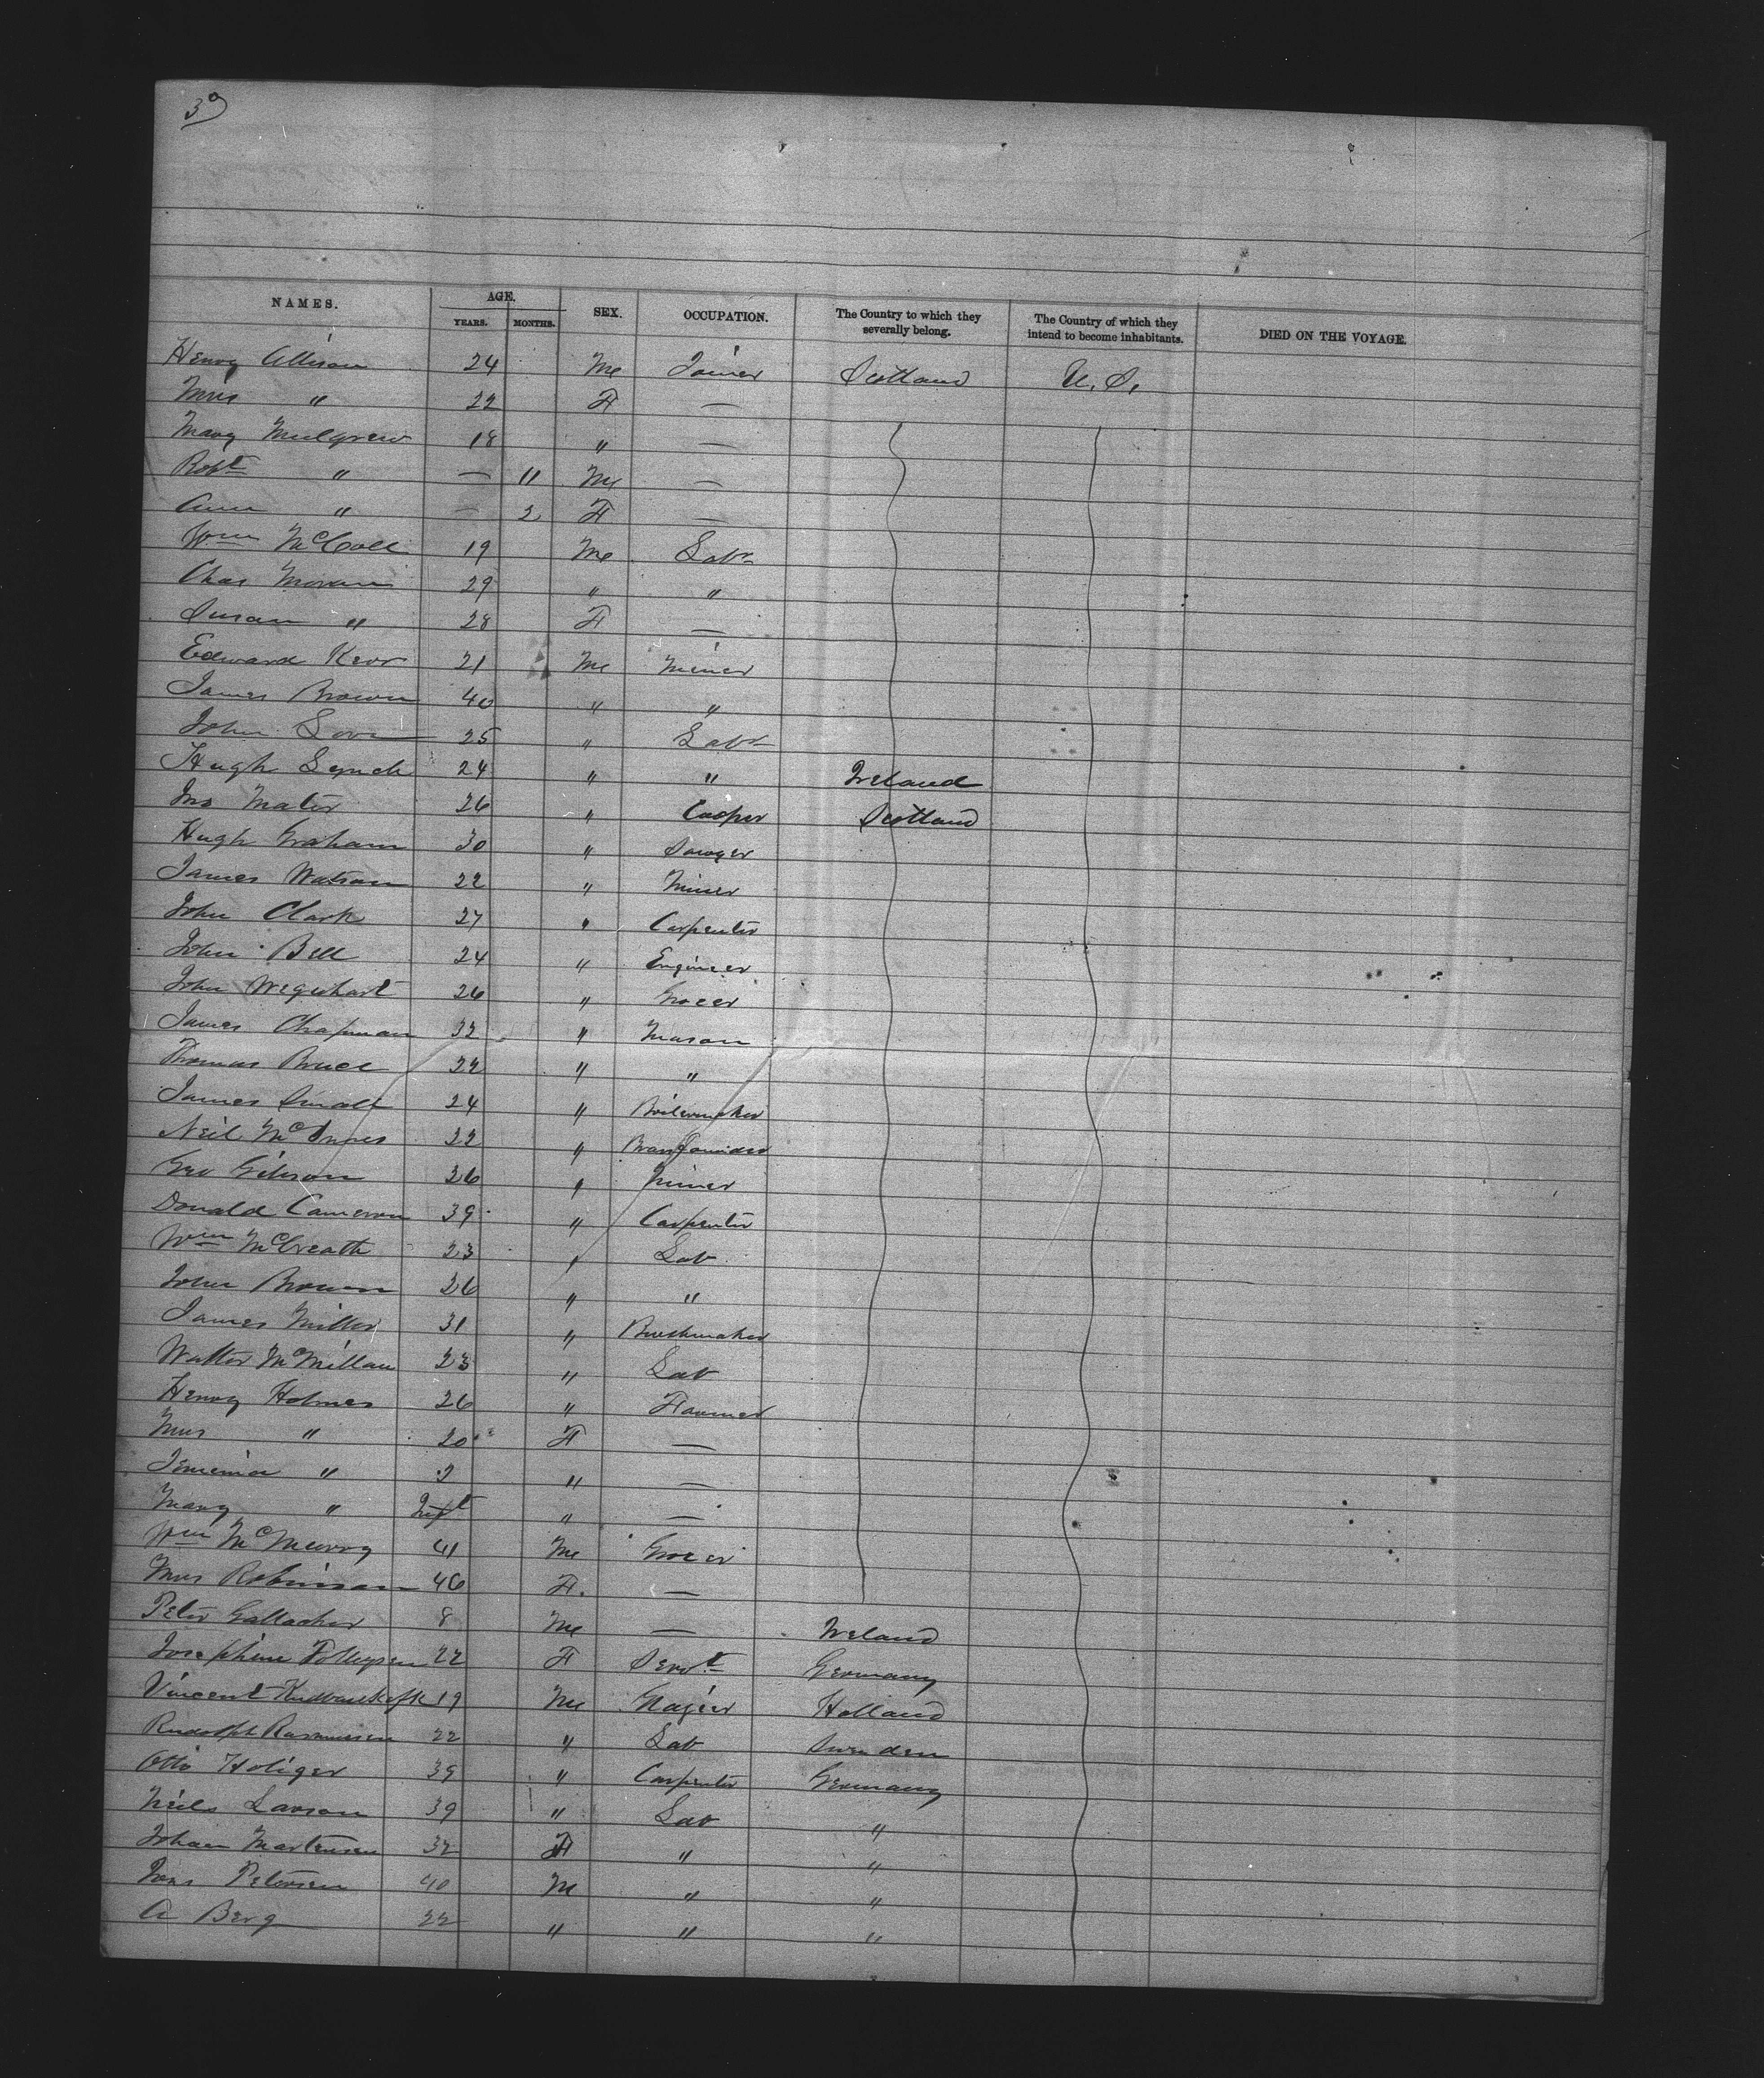 3
NAMES. AGE. YEARS. MONTHS. SEX. OCCUPATION. The Country to which they severally belong. The Country of which they intend to become inhabitants. DIED ON THE VOYAGE.
Henry Allison 24 M Joiner Scotland U. S.
Mrs " 22 F —
Mary Mulgrew 18 " —
Robt " — 11 M —
Ann " — 2 F —
Wm McColl 19 M Labr
Chas Moran 29 " "
Susan " 28 F —
Edward Kerr 21 M Miner
James Brown 40 " "
John Love 25 " Labr
Hugh Lynch 24 " " Ireland
Jno Mater 26 " Cooper Scotland
Hugh Graham 30 " Sawyer
James Watson 22 " Miner
John Clark 27 " Carpenter
John Bell 24 " Engineer
John Urquhart 26 " Grocer
James Chapman 32 " Mason
Thomas Bruce 22 " "
James Small 24 " Boilermaker
Neil McInnes 22 " Brassfounder
Geo Gibson 26 " Miner
Donald Cameron 39 " Carpenter
Wm McCreath 23 " Lab
John Brown 26 " "
James Miller 31 " Brushmaker
Walter McMillan 23 " Lab
Henry Holmes 26 " Farmer
Mrs " 20 F —
Jemima " 2 " —
Mary " Inft " —
Wm McMurry 41 M Grocer
Mrs Robinson 46 F. —
Peter Gallacher 8 M — Ireland
Josephine 22 F Servt Germany
Vincent 19 M Holland
Rudolph Rasmussen 22 " Lab Sweden
Otto Holiger 39 " Carpenter Germany
Neils Larson 39 " Lab "
Johan Martensen 32 F " "
Jens Petersen 40 M " "
A Berg 22 " " "